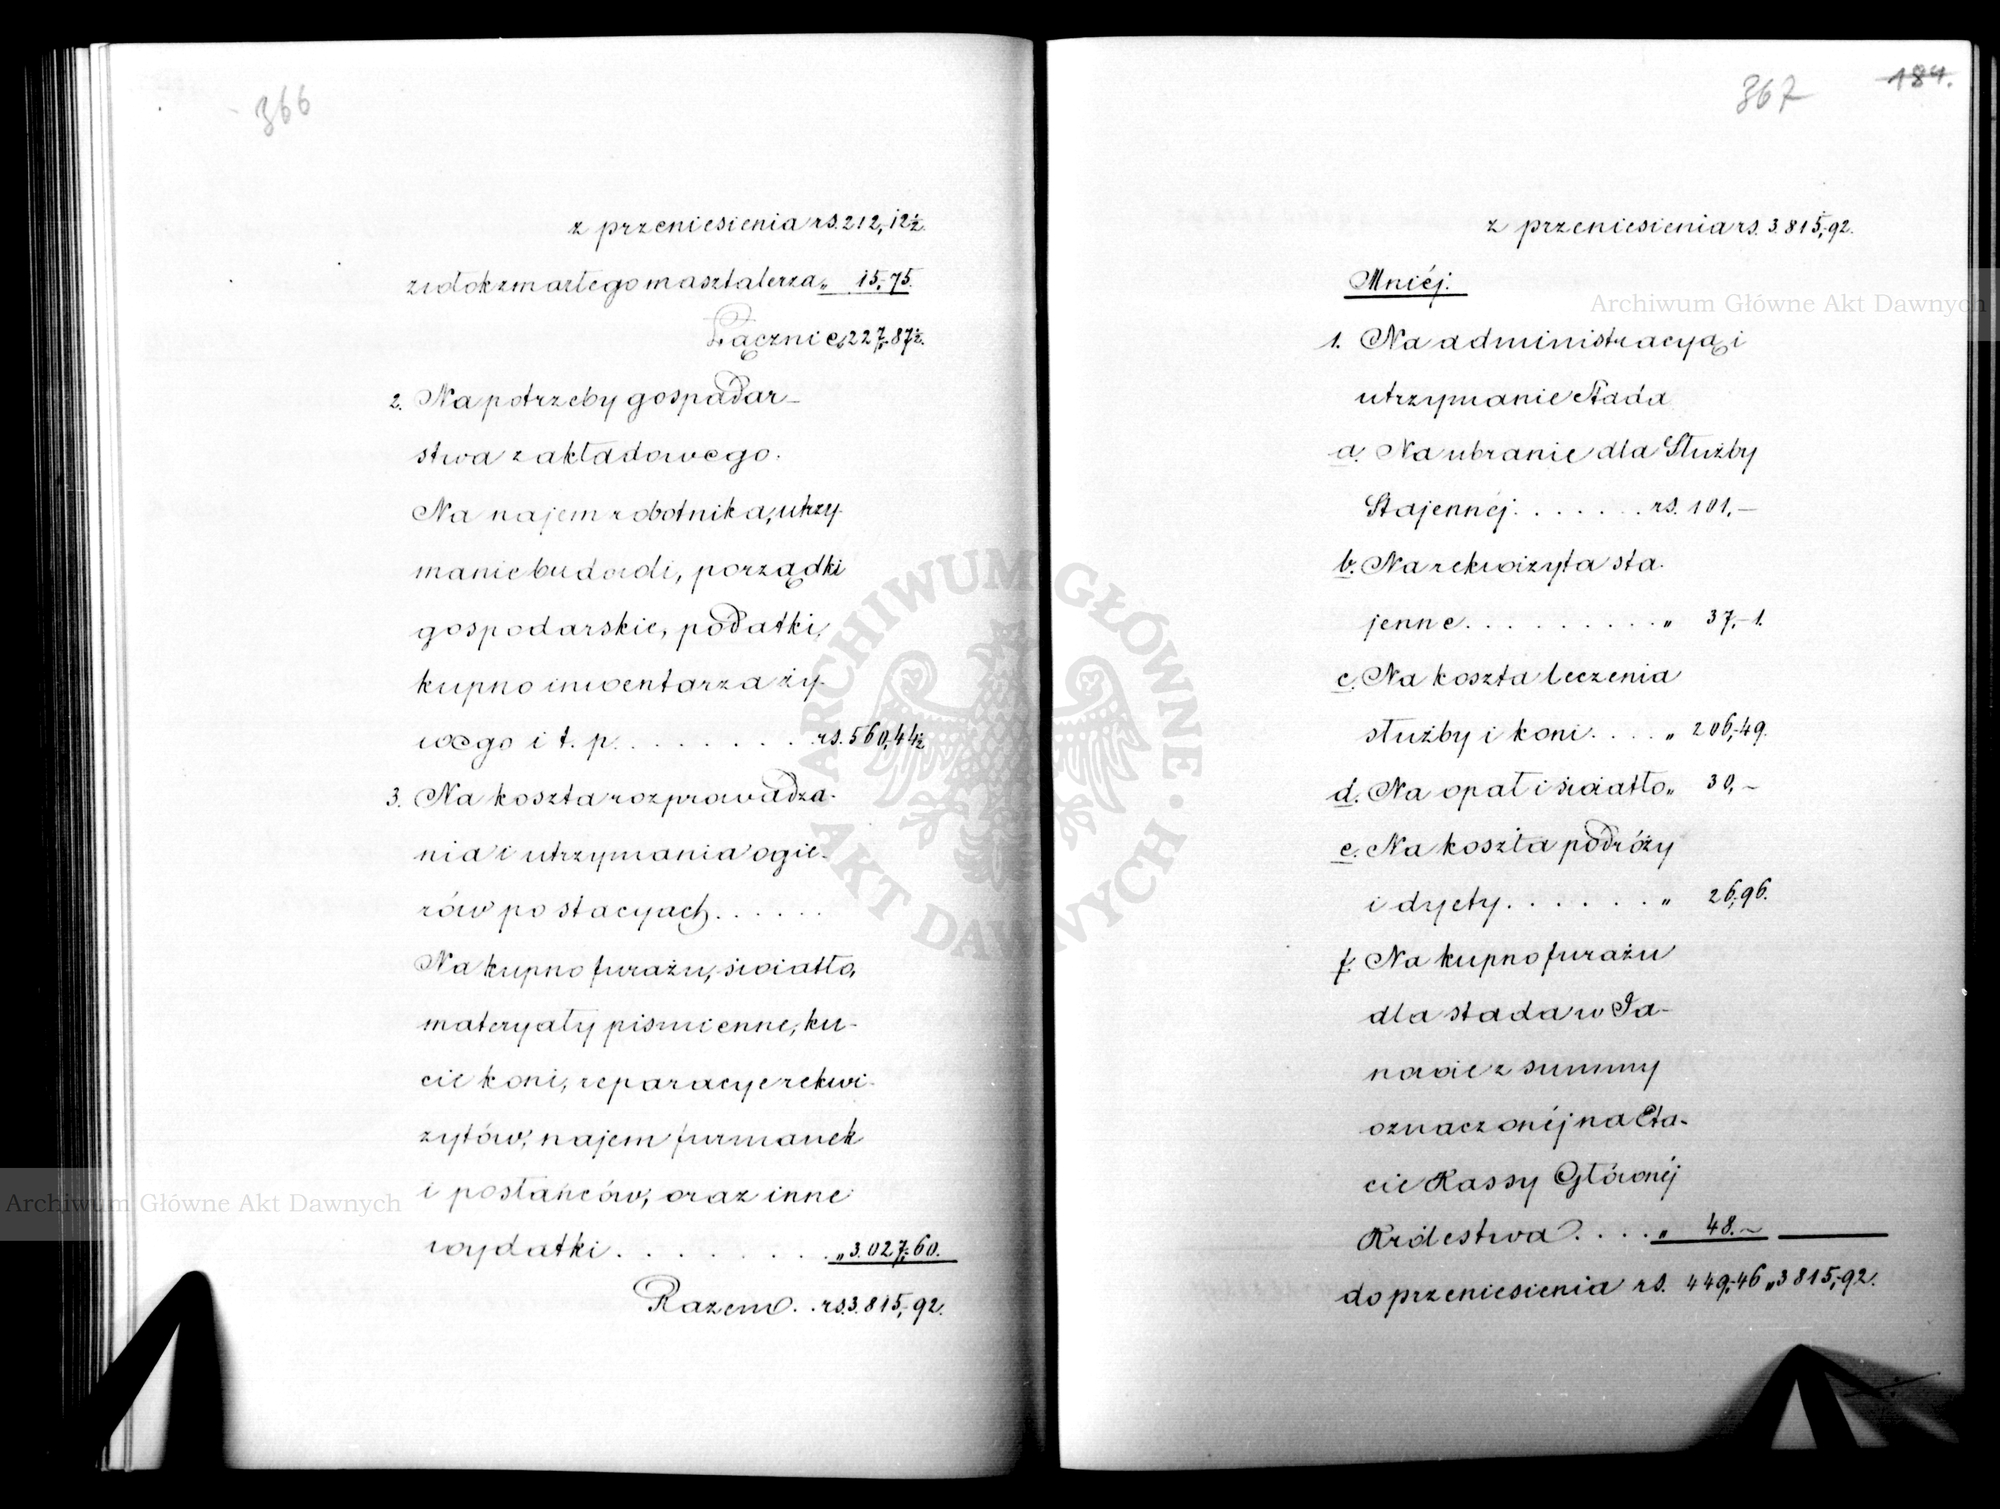 366
z przeniesienia rs. 212,12½.
zwłok zmarłego masztalerza „ 15,75.
Łącznie „ 227,87½.
2. Na potrzeby gospodar-
stwa zakładowego.
Na najem robotnika, utrzy-
manie budowli, porządki
gospodarskie, podatki,
kupno inwentarza ży-
wego i t. p. . . . . . . . . rs. 560,44½
3. Na koszta rozprowadza-
nia i utrzymania ogie-
rów po stacyach . . . . . .
Na kupno furażu, światło,
materyały piśmienne, ku-
cie koni, reparacye rekwi-
zytów, najem furmanek
i posłańców, oraz inne
wydatki . . . . . . . . . „ 3.027,60.
Razem . . rs. 3.815,92.
367
184.
z przeniesienia rs. 3.815,92.
Mniéj:
1. Na administracyą i
utrzymanie Stada
a. Na ubranie dla Służby
Stajennéj . . . . . . . rs. 101,—
b. Na rekwizyta sta-
jenne . . . . . . . . . . „ 37,-1.
c. Na koszta leczenia
służby i koni . . . . „ 206,49.
d. Na opał i światło „ 30,—
e. Na koszta podróży
i dyety . . . . . . . „ 26,96.
f. Na kupno furażu
dla stada w Ja-
nowie z summy
oznaczonéj na Eta-
cie Kassy Głównéj
Królestwa . . . . „ 48.—
do przeniesienia rs. 449,46 „ 3815,92.
Archiwum Główne Akt Dawnych
Archiwum Główne Akt Dawnych
ARCHIWUM GŁÓWNE AKT DAWNYCH